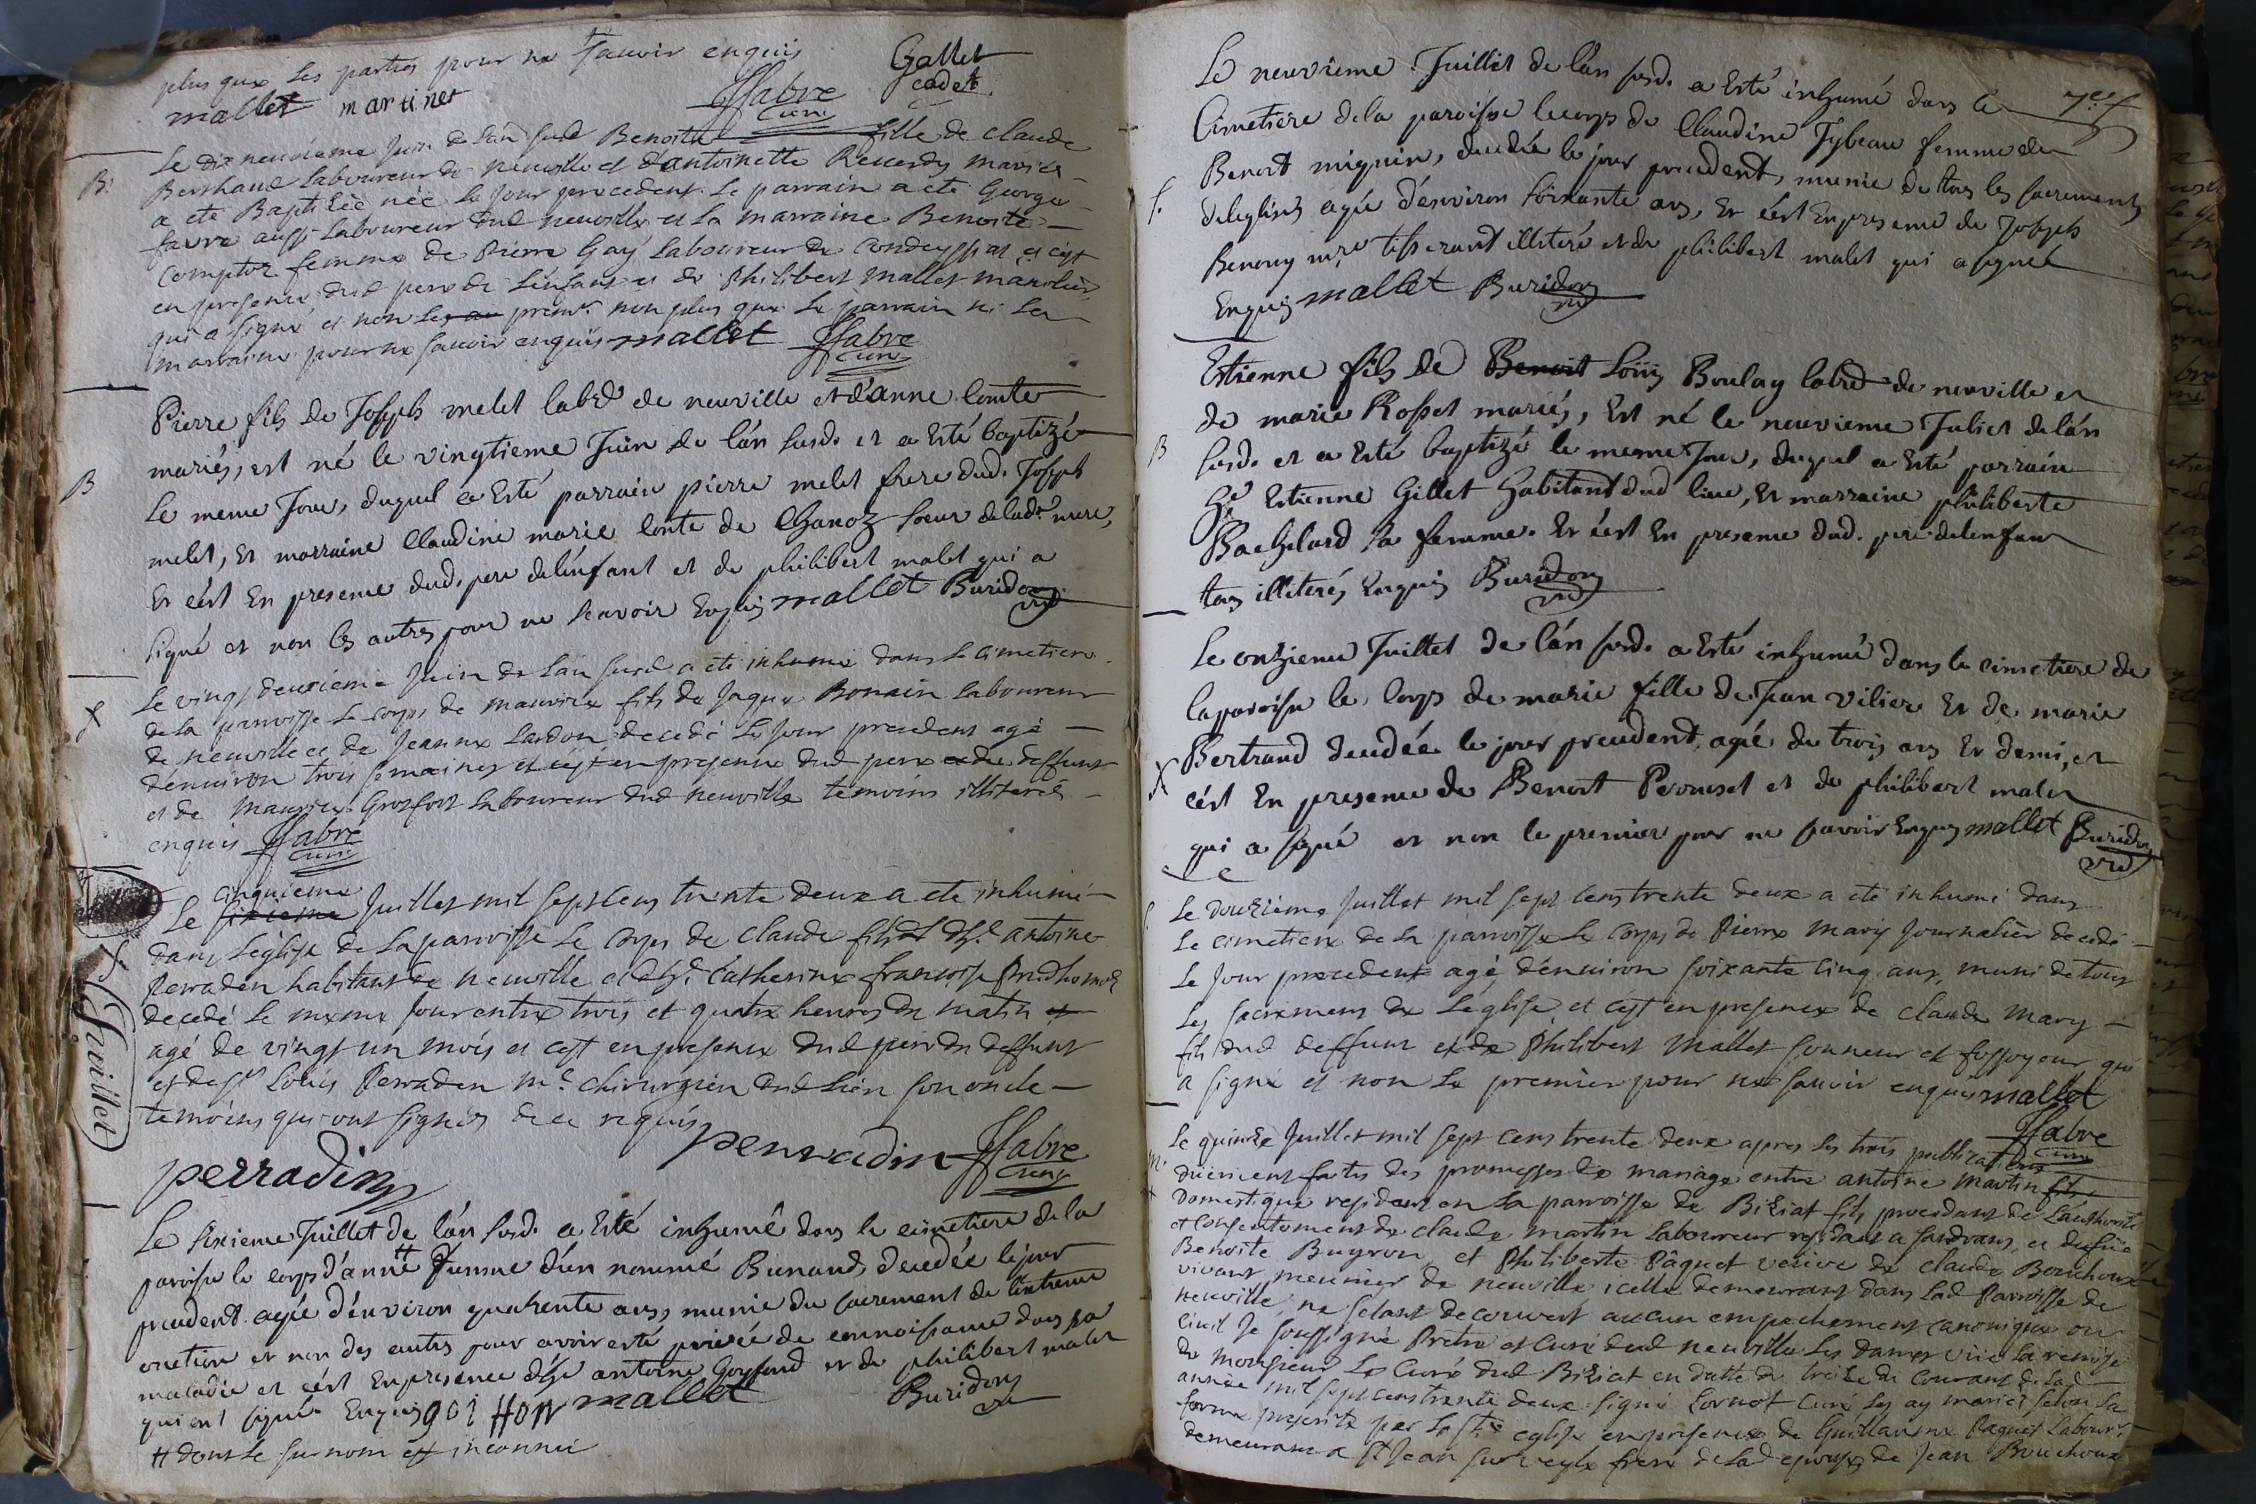 plus que les parties pour ne scavoir enquis
mallet martinet ffabre Curé Gallet cadet
Le dix neuvieme Juin de lan susd Benoite fille de claude
B. Berthaud Laboureur de neuville et d'antoinette mariés
a ete Baptisée née le Jour precedent le parrain a ete George
favre aussi Laboureur dud neuville et la marraine Benoite
Comptor femme de Pierre Gay Laboureur de Condeyssiat et c'est
en presence dud pere de l'enfant et de Philibert Mallet
qui a signé et non le premr non plus que le parrain ni la
marraine pour ne scavoir enquis mallet ffabre Curé
Pierre fils de Joseph melet labr de neuville et d'anne Comte
mariés, est né le vingtieme Juin de l'an susd. et a Esté baptizé
B le meme Jour, duquel a Esté parrain pierre melet frere dud. Joseph
melet, Et marraine Claudine marie Conte de Chanoz soeur de lade mere,
Et c'est En presence dud. pere de l'enfant et de philibert malet qui a
signé et non les autres pour ne scavoir Enquis mallet Buridon vic
Le vingt deuxieme Juin de l'an susd a ete inhumé dans le cimetiere
de la parroisse le corps de maurice fils de Jaque Bonain laboureur
de neuville et de Jeanne Lardon decedé le Jour precedent agé
d'environ trois semaines et c'est en presence dud pere du deffunt
et de Maurice Grosfort Laboureur dud neuville temoins illiterés
enquis ffabre Curé
Juillet
cinquieme
Le sixieme Juillet mil sept cens trente deux a ete inhumé
dans l'eglise de la parroisse le corps de claude fils de sr antoine
Perraden habitant de neuville et de de Catherine francoise Prudhomme
decedé le meme Jour entre trois et quatre heures du matin et
agé de vingt un mois et c'est en presence dud pere du deffunt
et de sr Louis Perraden me chirurgien dud lieu son oncle
temoins qui ont signés de ce requis
perradin perradin ffabre Curé
Le sixieme Juillet de l'an susd. a Esté inhumé dans le cimetiere de la
paroisse le corps d'anne # femme d'un nommé Bunand, decedée le jour
precedent agée d'environ quarante ans, munie du sacrement de l'extreme
onction et non des autres pour avoir esté privée de connoissance dans sa
maladie et c'est En presence de antoine Goyffond et de philibert malet
qui ont signé Enquis goi Hon mallet Buridon vic
# dont le surnom est inconnu
Le neuvieme Juillet de l'an susd. a Esté inhumé dans le
Cimetiere de la paroisse le corps de Claudine Tybeau femme de
Benoit miguin, decedée le jour precedent, munie de tous les sacrements
f. de l'eglise agée d'environ soixante ans, Et c'est En presence de Joseph
Benony mre tisserant illiteré et de philibert malet qui a signé
Enquis mallet Buridon vic
Estienne fils de Benoit Loüis Boulay labr de neuville et
de marie Rosset mariés, Est né le neuvieme Juliet de l'an
B susd. et a Esté baptizé le meme Jour, duquel a Esté parrain
Estienne Gillet habitant dud lieu, Et marraine philiberte
Bachelard sa femme. Et c'est En presence dud. pere de l'enfant
tous illiterés Enquis Buridon vic
Le onzieme Juillet de l'an susd. a Esté inhumé dans le cimetiere de
la paroisse le Corps de marie fille de Jean vilier Et de marie
Bertrand decedée le jour precedent, agée de trois ans Et demi, et
c'est En presence de Benoit Perouset et de philibert malet
qui a signé et non le premier pour ne scavoir Enquis mallet Buridon vic
Le douzieme Juillet mil sept cens trente deux a ete inhumé dans
le cimetiere de la parroisse le corps de Pierre Mary Journalier decedé
le Jour precedent agé d'environ soixante cinq ans, muni de tous
les sacremens de l'eglise et c'est en presence de claude Mary
fils dud deffunt et de Philibert Mallet sonneur et fossoyeur qui
a signé et non le premier pour ne scavoir enquis mallet
ffabre Curé
Le quinze Juillet mil sept cens trente deux apres les trois publications
duëment faites des promesses de mariage entre antoine Martin
domestique residant en la parroisse de Biziat fils procedant de l'authorité
et consentement de claude martin Laboureur residant a sandrans, et de
Benoite Buyron, et Philiberte Pâquet veuve de claude Bouchoux
vivant meunier de neuville icelle demeurant dans lad Parroisse de
neuville, ne s'etant decouvert aucun empechement canonique ou
civil Je soussigné Pretre et Curé dud neuville Les dames viie la remise
de Monsieur Le Curé dud Biziat en datte du treize du courant de lad
année mil sept cens trente deux signé Cornot Curé les ay mariés selon la
forme prescrite par la Ste eglise en presence de Guillaume Paquet Labour
demeurant a St Jean sur veyle frere de lad epouse, de Jean Bouchoux